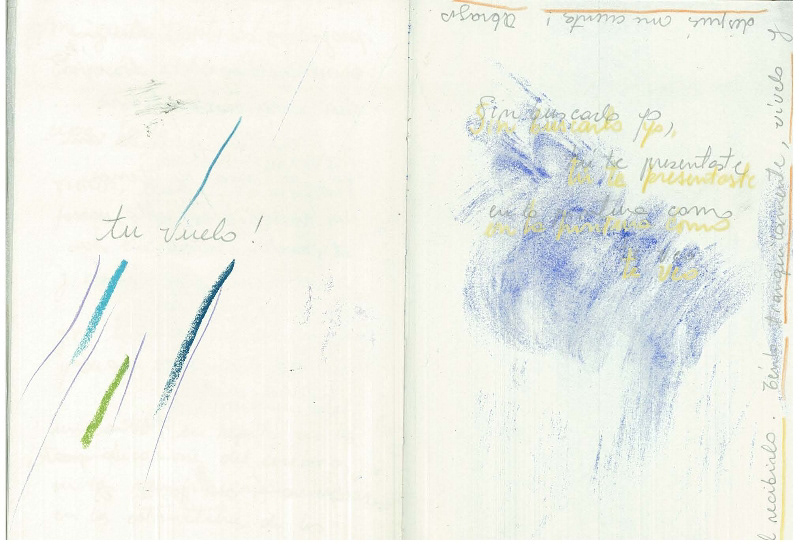 tu vuelo!
Sin buscarlo yo,
tu te presentaste
en la pintura como
te veo
Sin buscarlo yo,
tu te presentaste
en la pintura como
recibirlo. tranquilamente, vívelo y
después me cuenta! Abrazo